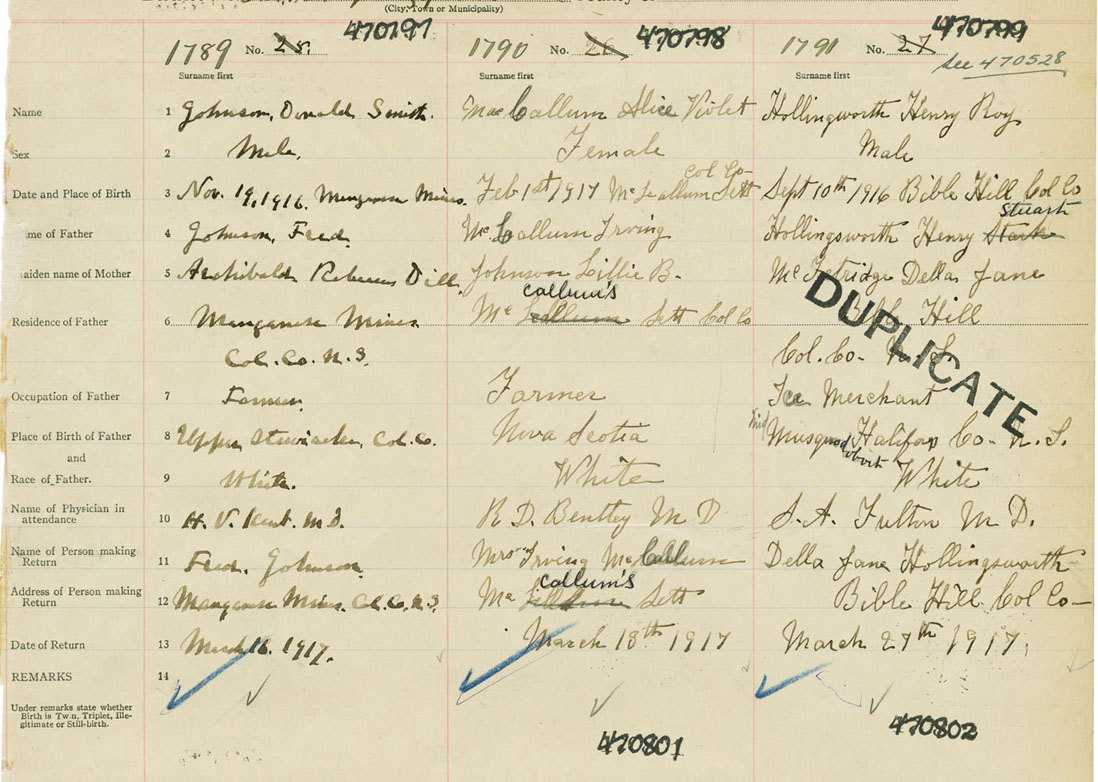 (City, Town or Municipality)
470797 470798 470799
1789 No. 25. 1790 No. 26 1791 No. 27
see 470528
Surname first Surname first Surname first
Name 1 Johnson, Donald Smith. MacCallum Alice Violet Hollingworth Henry Roy
Sex 2 Male. Female Male
Col Co-
Date and Place of Birth 3 Nov. 19, 1916. Manganese Mines. Feb 1st 1917 McCallum Sett Sept 10th 1916 Bible Hill Col Co
Stuart
me of Father 4 Johnson, Fred. McCallum Irving Hollingsworth Henry
aiden name of Mother 5 Archibald Rebecca Dill. Johnson Lillie B. McFetridge Della Jane
Callum's
Residence of Father 6 Manganese Mines Mc Sett Col Co Bible Hill
DUPLICATE
Col. Co. N. S. Col. Co- N. S.
Occupation of Father 7 Farmer. Farmer Ice Merchant
Place of Birth of Father 8 Upper Stewiacke, Col. Co. Nova Scotia Mid Musquodoboit Halifax Co- N. S.
and
Race of Father. 9 White. White White
Name of Physician in
attendance 10 H. V. Kent. M. D. R. D. Bentley M D S. A. Fulton M D.
Name of Person making
Return 11 Fred. Johnson. Mrs Irving McCallum Della Jane Hollingsworth
Callum's
Address of Person making
Return 12 Manganese Mines Col. Co. N. S. Mc Sett Bible Hill Col Co-
Date of Return 13 March 16. 1917. March 18th 1917 March 27th 1917.
REMARKS 14
Under remarks state whether
Birth is Twin, Triplet, Ille-
gitimate or Still-birth.
470801 470802